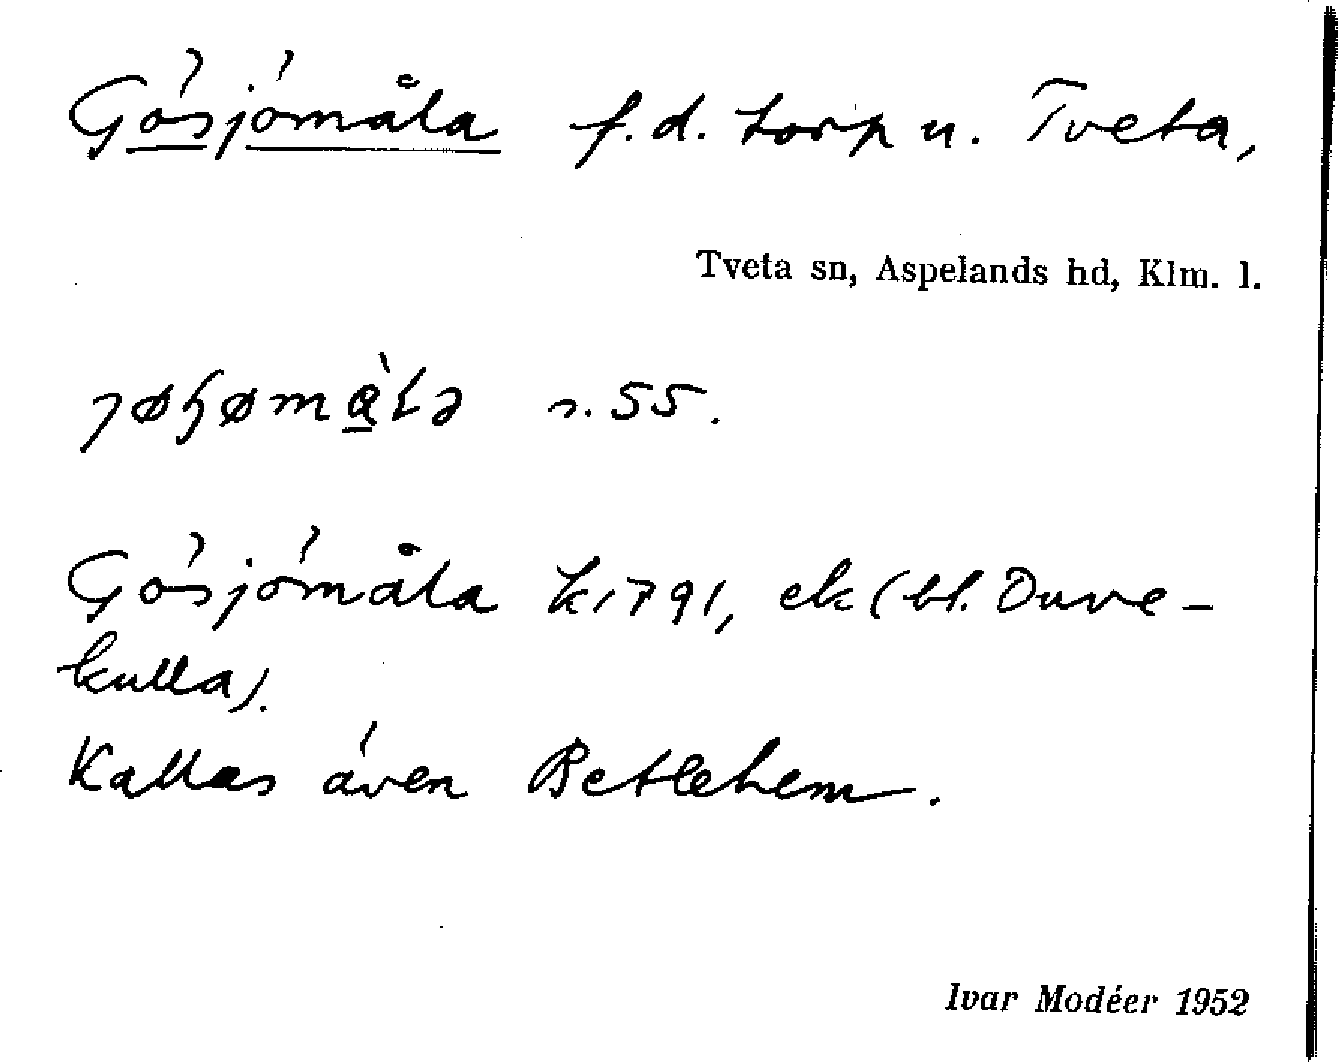 Gösjömåla f.d. torp u. Tveta,
Tveta sn, Aspelands hd, Klm. l.
s. 55.
Gösjömåla k 1791, ek (bl. Duve-
kulla).
Kallas även Betlehem.
Ivar Modéer 1952